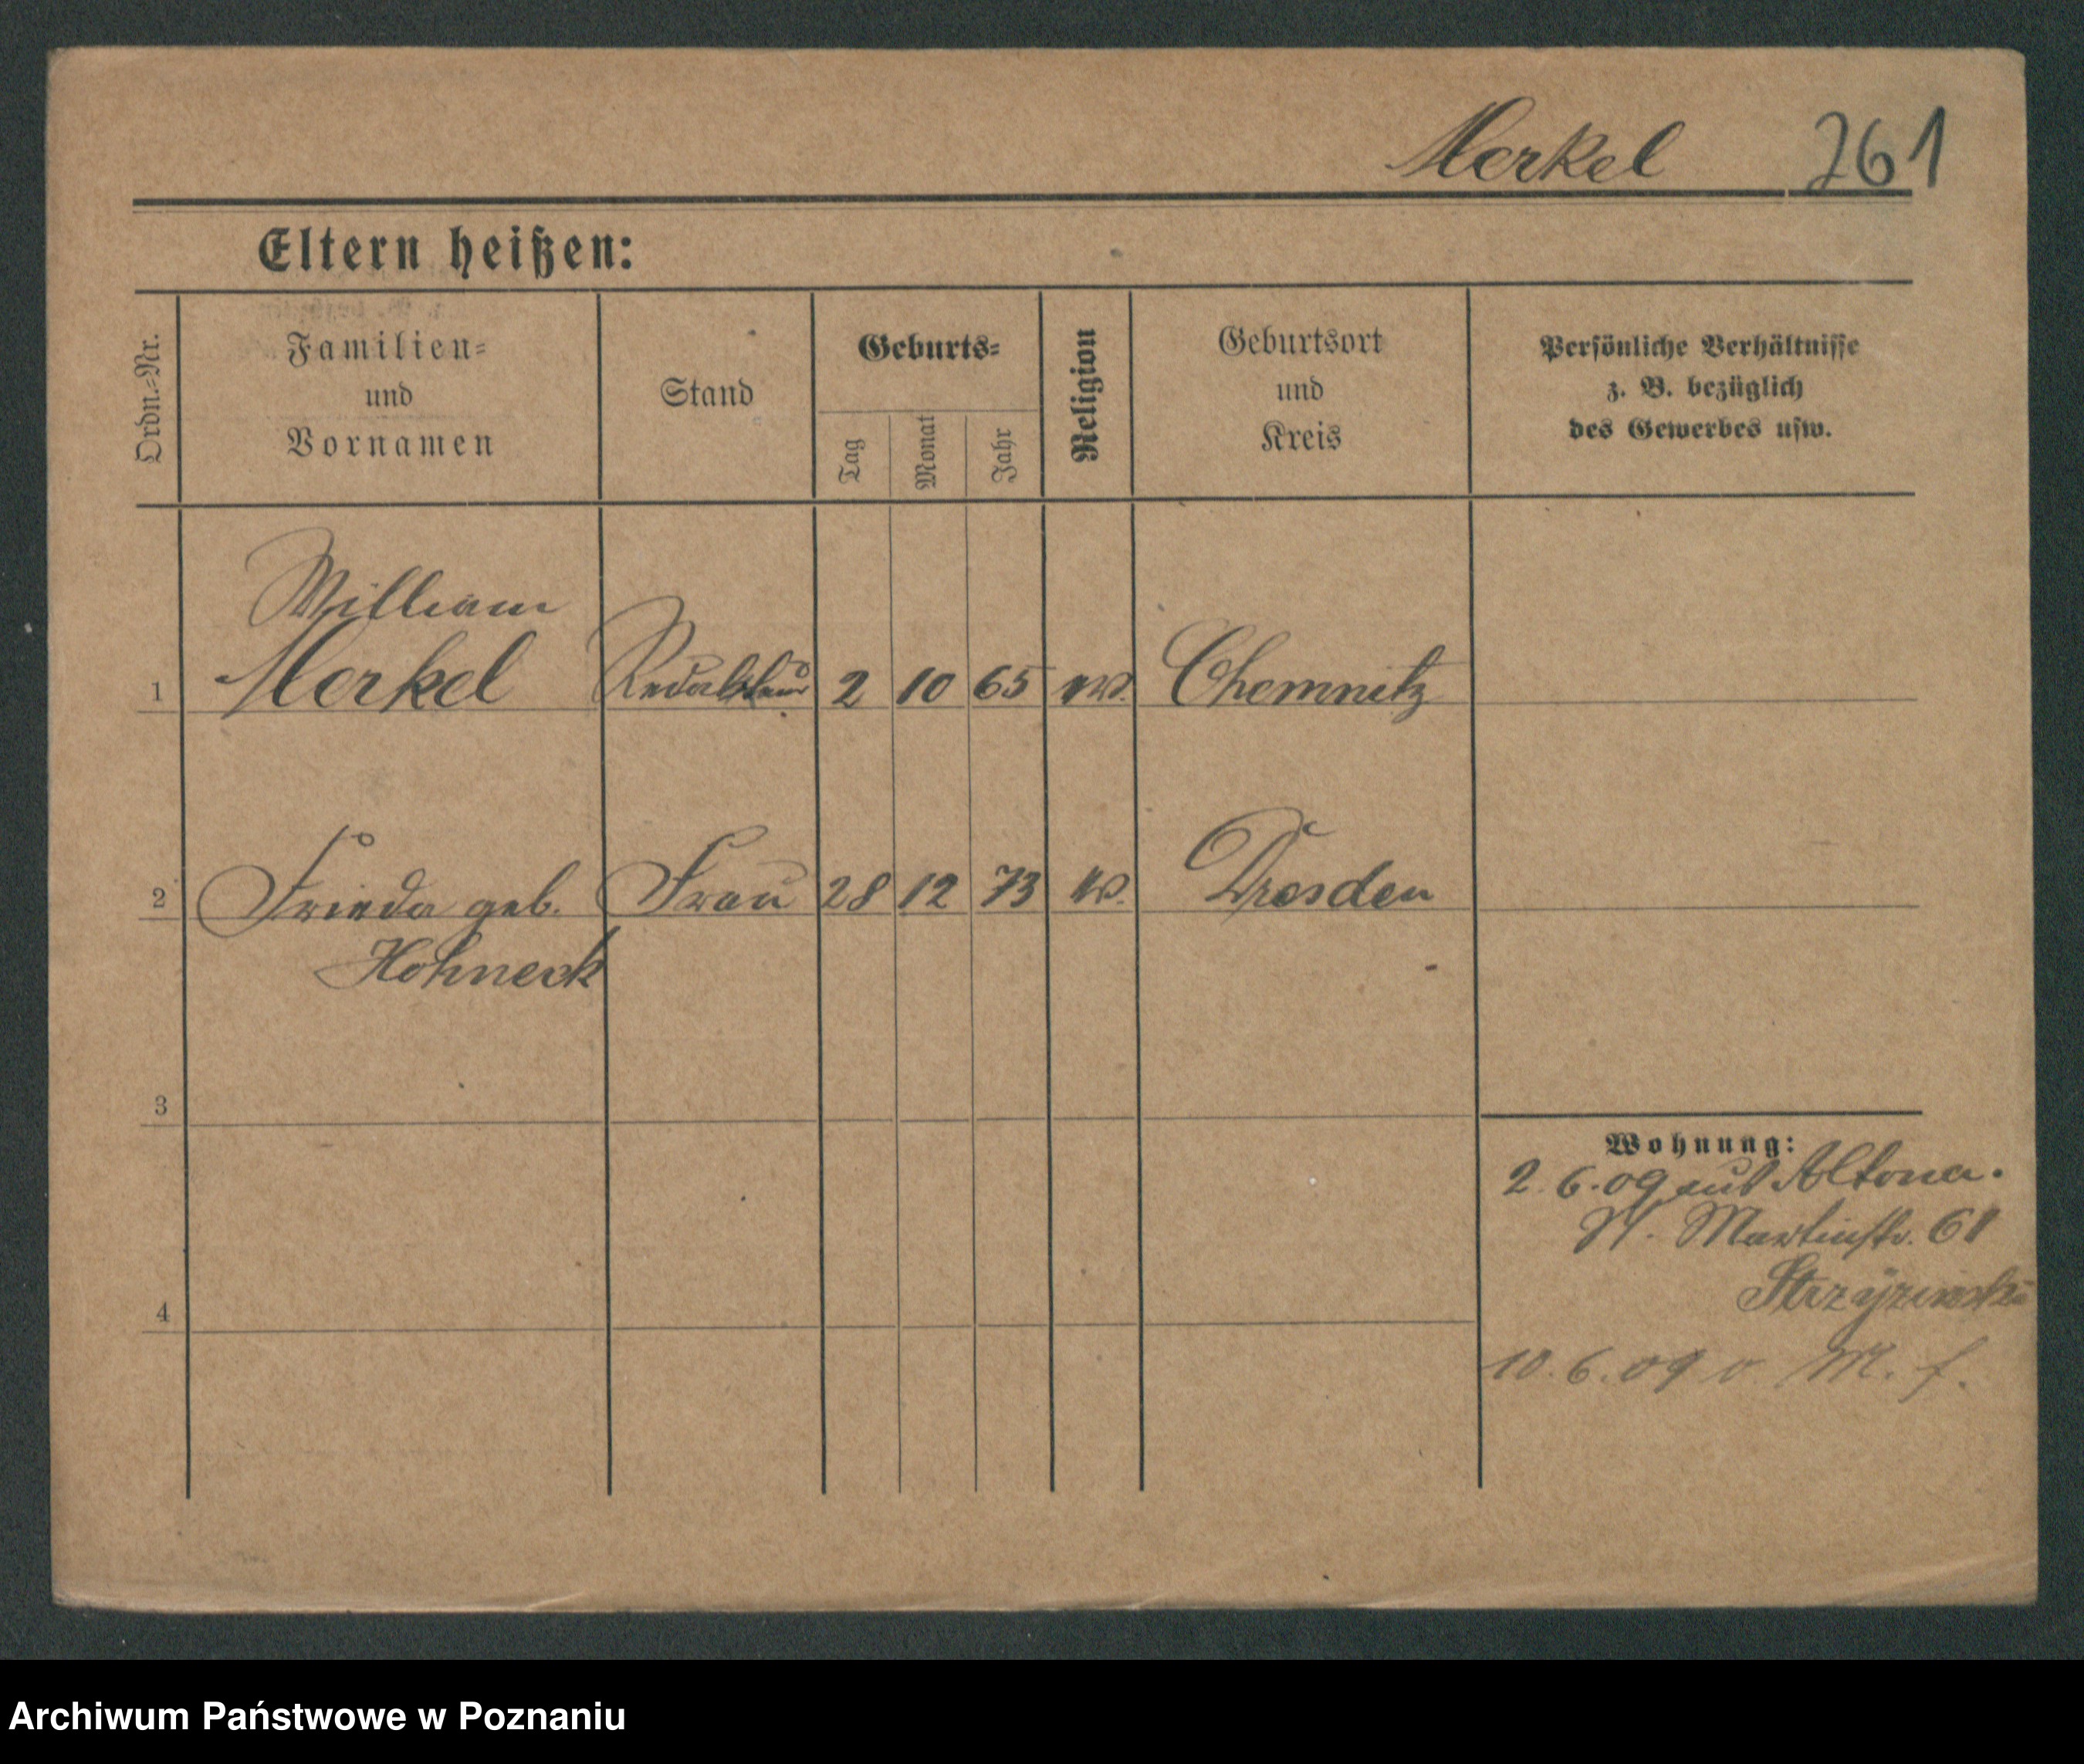 Merkel 261
Eltern heißen:
Ordn.-Nr.
Familien-
und
Vornamen
Stand
Geburts-
Tag
Monat
Jahr
Religion
Geburtsort
und
Kreis
Persönliche Verhältnisse
z. B. bezüglich
des Gewerbes usw.
William
1 Merkel Redakteur 2 10 65 ev. Chemnitz
2 Frieda geb. Frau 28 12 73 ev. Dresden
Hohneck
3
Wohnung:
2. 6. 09 aus Altona.
St. Martinstr. 61
4
10. 6. 09 v M. f.
Archiwum Państwowe w Poznaniu